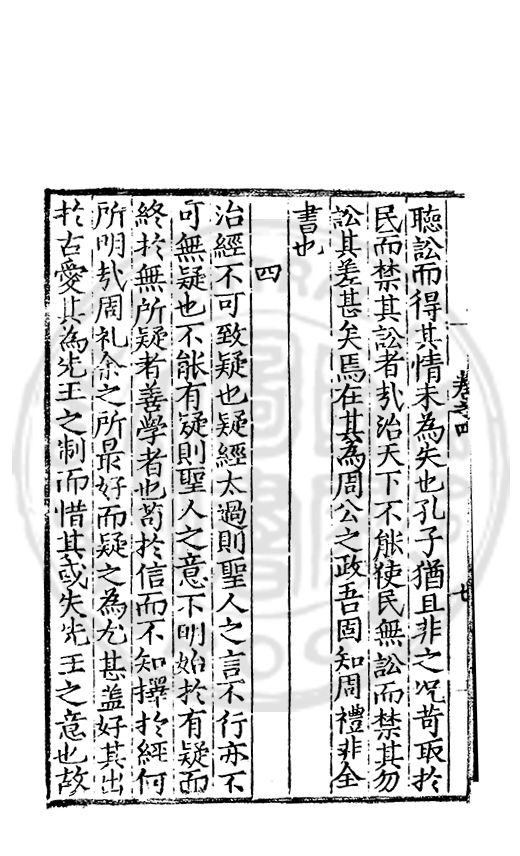 卷之四
廿
聽訟而得其情未為失也孔子猶且非之况苛取於
民而禁其訟者㢤治天下不能使民無訟而禁其勿
訟其差甚矣焉在其為周公之政吾固知周禮非全
書也
四
治經不可致疑也疑經太過則聖人之言不行亦不
可無疑也不能有疑則聖人之意不明始於有疑而
終於無所疑者善學者也苟於信而不知擇於經何
所明㢤周礼余之所最好而疑之為尤甚盖好其出
於古愛其為先王之制而惜其或失先王之意也故